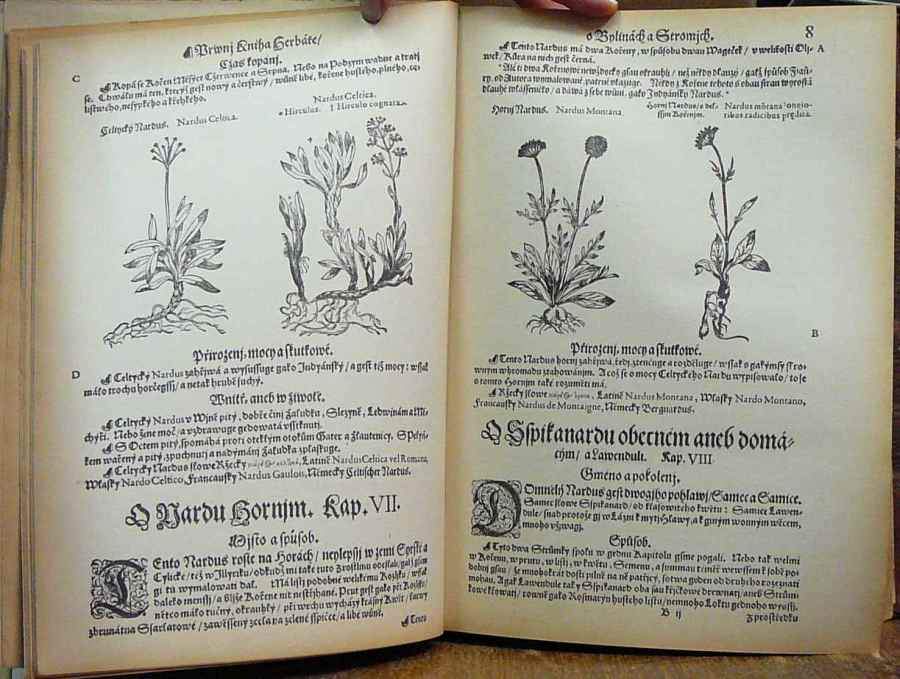 Prwnj Kniha Herbáře/
Czas kopanj.
C
Kopá se Kořen Měsýce Czerwence a Srpna. Nebo na Podzym wadne a tratj
se. Chwálu má ten, kterýž gest nowý a čerstwý / wůně libé, kořene hustého, plného,
listwého, nesypkého a křehkého.
Celtycký Nardus. Nardus Celtica.
Nardus Celtica.
Hirculus. Hirculo cognata.
Přirozenj, mocy a skutkowé.
D
Celtycký Nardus zahřjwá a wysussuge gako Indyánský / a gest týž mocy: wssak
málo trochu horčegssj / a ne tak hrubě suchý.
Wnitř. aneb w žiwotě.
Celtycký Nardus w Wjně pitý, dobře činj Žaludku, Slezyně, Ledwinám a Mě-
chýři. Nebo žene moč / a vzdrawuge gedowatá vsstknutj.
S Octem pitý, spomáhá proti oteklým otokům Gater a Žlautenicy. S Pelyň-
kem wařený a pitý, zpuchnutj a nadýmánj Žaludka splaskuge.
Celtycký Nardus slowe Ržecky Latině Nardus Celtica vel Romana,
Wlasky Nardo Celtico, Francausky Nardus Gaulois, Německy Celtischer Nardus.
O Nardu Hornjm. Kap. VII.
Mjsto a spůsob.
Tento Nardus roste na Horách / neylepssj w zemi Syrsté a
Cylické / též w Illyryku / odkudž mi také tuto Brostlinu poslali / gakž gsem
gi tu wymalowati dal. Má listj podobné welikému Kozýku / wssak
daleko menssj / a bljže Kořene nic nestřjhané. Prut gest gako při Kozýku/
něco gako ručný, okrauhlý / při wrchu wycházý krásný Kwět / barwy
zbrunátna Ssarlatowé / zawěssený zcela na zelené sspičce / a libé wůně.
Tento
o Bylinách a Stromjch.
8
A
Tento Nardus má dwa Kořeny, w spůsobu dwau Wagček / w welikosti Oli-
wek / Kůra na nich gest černá.
Ač ti dwa Kořenowé newždycky gsau okrauhlj / než někdy dlauzý / gakž spůsob Figu-
ry, od Autora wymalowané, patrně vkazuge. Někdy z Kořene tohoto s obau stran wyrostá
dlauhé wlásenjčko / a dáwá z sebe wůni, gako Indyánský Nardus.
Hornj Nardus. Nardus Montana.
Hornj Nardus / s del-
ssjm Kořenjm.
Nardus mõtana oblongio-
ribus radicibus prędita.
B
Přirozenj, mocy a skutkowé.
Tento Nardus hornj zahřjwá, tedy ztenčuge a rozděluge / wssak s gakýmsy stro-
wým w hromadu stahowánjm. A což se o mocy Celtyckého Nardu wypisowalo / to se
o tomto Hornjm také rozuměti má.
Ržecky slowe Latině Nardus Montana, Wlasky Nardo Montano,
Francausky Nardus de Montaigne, Německy Bergnardus.
O Sspikanardu obecném aneb domá-
cým / a Lawenduli. Kap. VIII
Gméno a pokolenj.
Domnělý Nardus gest dwogjho pohlawj / Samec a Samice.
Samec slowe Sspikanard / od klasowitého kwětu: Samice Lawen-
dule / snad protože gj w Lázni k mytj Hlawy, a k giným wonným wěcem,
mnoho vžjwagj.
Spůsob.
Tyto dwa Stromky spolu w gednu Kapitolu gsme pogali. Nebo tak welmi
w Kořenu, w prutu, w listj, w kwětu, Semenu, a summau téměř we wssem k sobě po-
dobnj gsau / že mnohokrát dosti pilně na ně patřjcý, sotwa geden od druhého rozeznati
mohau. A gak Lawendule tak Sspikanard oba sau křjčkowé drewnatj, aneb Strům-
kowé křowatj / rowně gako Rozmarýn hustého listu / nemnoho Loktu gednoho wyssj.
B ij
Zprostředku